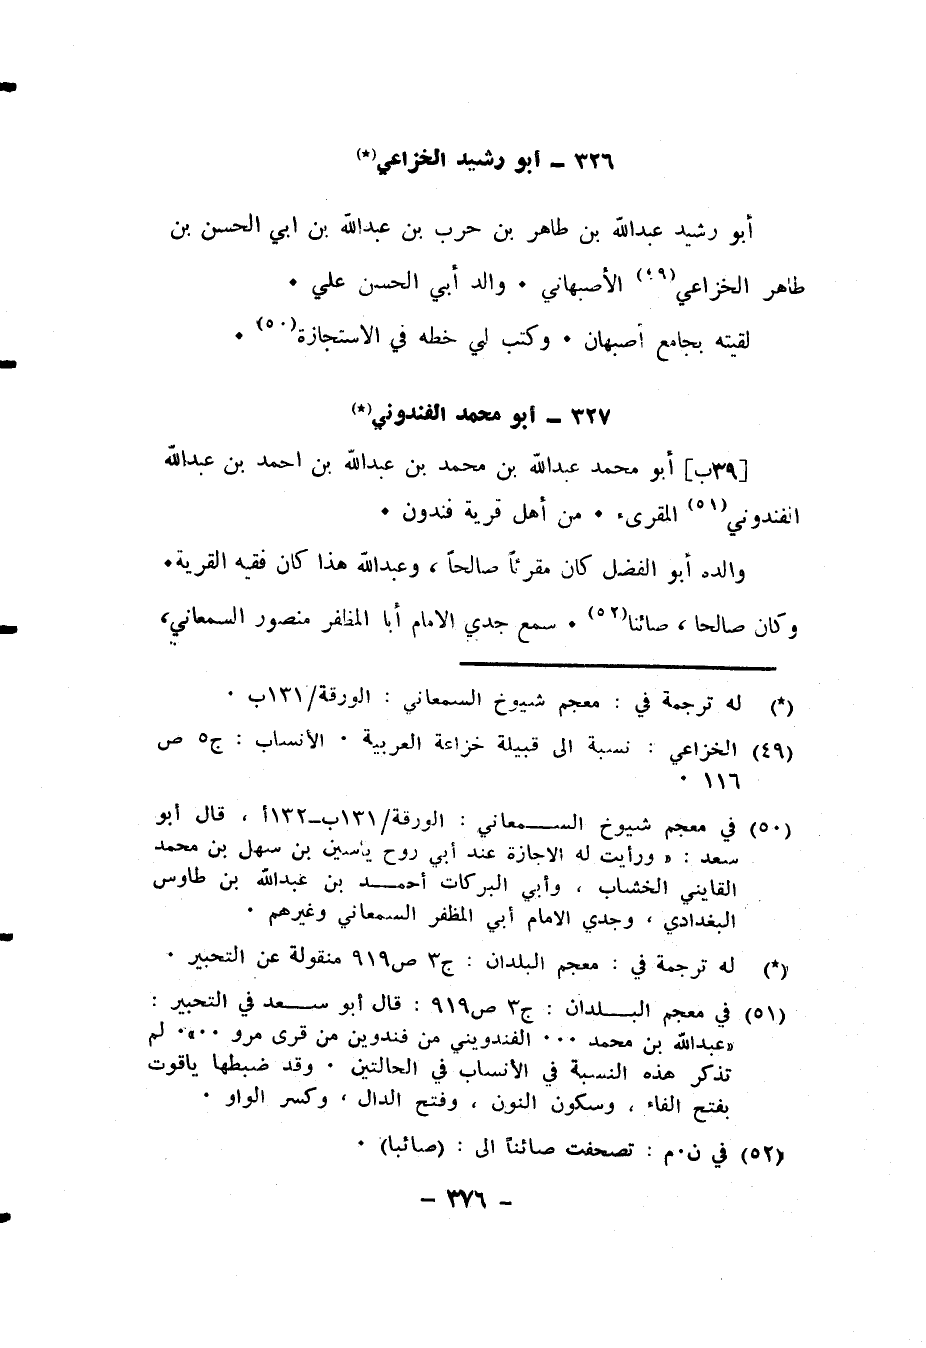 ٣٢٦ ــ أبو رشيد الخزاعي(*)
أبو رشيد عبدالله بن طاهر بن حرب بن عبدالله بن ابي الحسن بن
طاهر الخزاعي(٤٩) الأصبهاني ٠ والد أبي الحسن علي ٠
لقيته بجامع أصبهان ٠ وكتب لي خطه في الاستجازة(٥٠) ٠
٣٢٧ ــ أبو محمد الفندوني(*)
[٣٩ب] أبو محمد عبدالله بن محمد بن عبدالله بن احمد بن عبدالله
الفندوني(٥١) المقرىء ٠ من أهل قرية فندون ٠
والده أبو الفضل كان مقرئاً صالحاً ، وعبدالله هذا كان فقيه القرية٠
وكان صالحا ، صائنا(٥٢) ٠ سمع جدي الامام أبا المظفر منصور السمعاني،
(*) له ترجمة في : معجم شيوخ السمعاني : الورقة/١٣١ب ٠
(٤٩) الخزاعي : نسبة الى قبيلة خزاعة العربية ٠ الأنساب : ج٥ ص
١١٦ ٠
(٥٠) في معجم شيوخ الســمعاني : الورقة/١٣١ب–١٣٢أ ، قال أبو
سعد : « ورأيت له الاجازة عند أبي روح ياسين بن سهل بن محمد
القايني الخشاب ، وأبي البركات أحمــد بن عبدالله بن طاوس
البغدادي ، وجدي الامام أبي المظفر السمعاني وغيرهم ٠
(*) له ترجمة في : معجم البلدان : ج٣ ص٩١٩ منقولة عن التحبير ٠
(٥١) في معجم البــلدان : ج٣ ص٩١٩ : قال أبو ســعد في التحبير :
«عبدالله بن محمد ٠٠٠ الفندويني من فندوين من قرى مرو ٠٠»٠ لم
تذكر هذه النسبة في الأنساب في الحالتين ٠ وقد ضبطها ياقوت
بفتح الفاء ، وسكون النون ، وفتح الدال ، وكسر الواو ٠
(٥٢) في ن٠م : تصحفت صائناً الى : (صائبا) ٠
– ٣٧٦ –